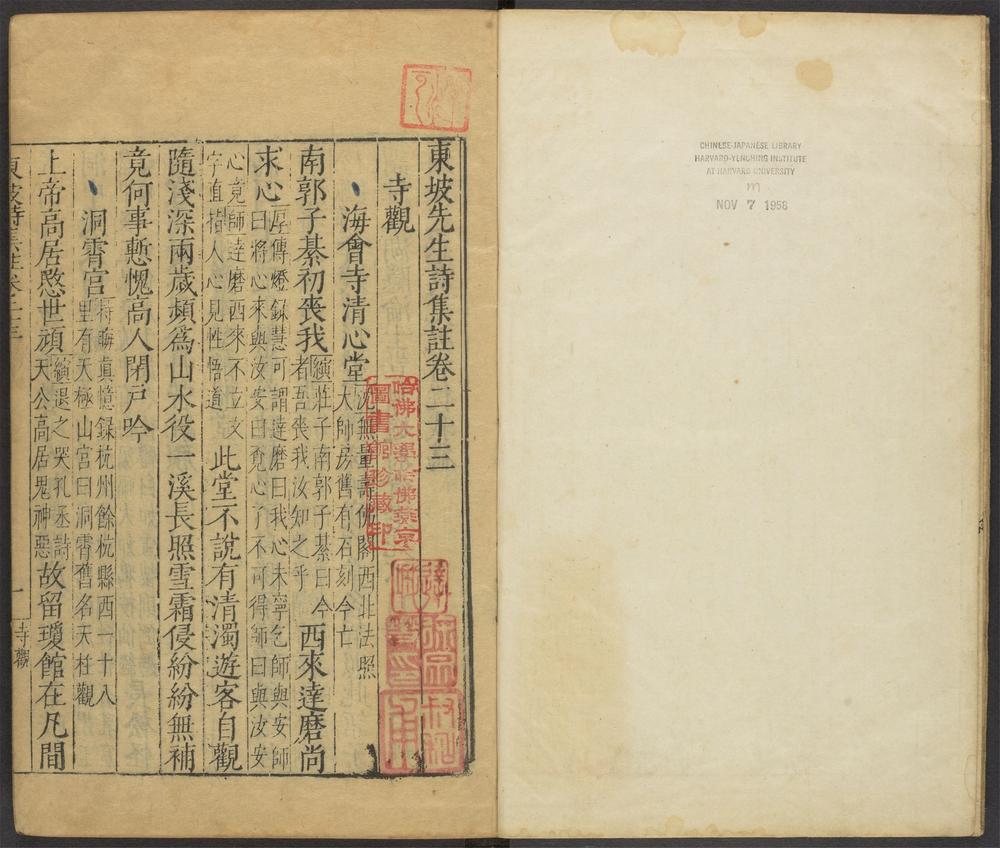 東坡先生詩集註卷二十三
寺觀
海會寺清心堂
沈無量壽佛閣西北法照
大師房舊有石刻今亡
南郭子綦初喪我
縯莊子南郭子綦曰今
者吾喪我汝知之乎
西來達磨尚
求心
厚傳燈錄慧可謂達磨曰我心未寧乞師與安師
曰將心來與汝安曰覓心了不可得師曰與汝安
心竟師達磨西來不立文
字直指人心見性悟道
此堂不說有清濁遊客自觀
隨淺深兩歲頻爲山水役一溪長照雪霜侵紛紛無補
竟何事慙愧高人閉戸吟
洞霄宮
符晦眞憶録杭州餘杭縣西一十八
里有天極山宮曰洞霄舊名天柱觀
上帝高居愍世頑
縯退之哭孔丞詩
天公高居鬼神惡
故留瓊館在凡間
東坡詩集註卷二十三
一
寺觀
哈佛大學哈佛燕京
圖書館珍藏印
CHINESE-JAPANESE LIBRARY
HARVARD-YENCHING INSTITUTE
AT HARVARD UNIVERSITY
m
NOV 7 1958